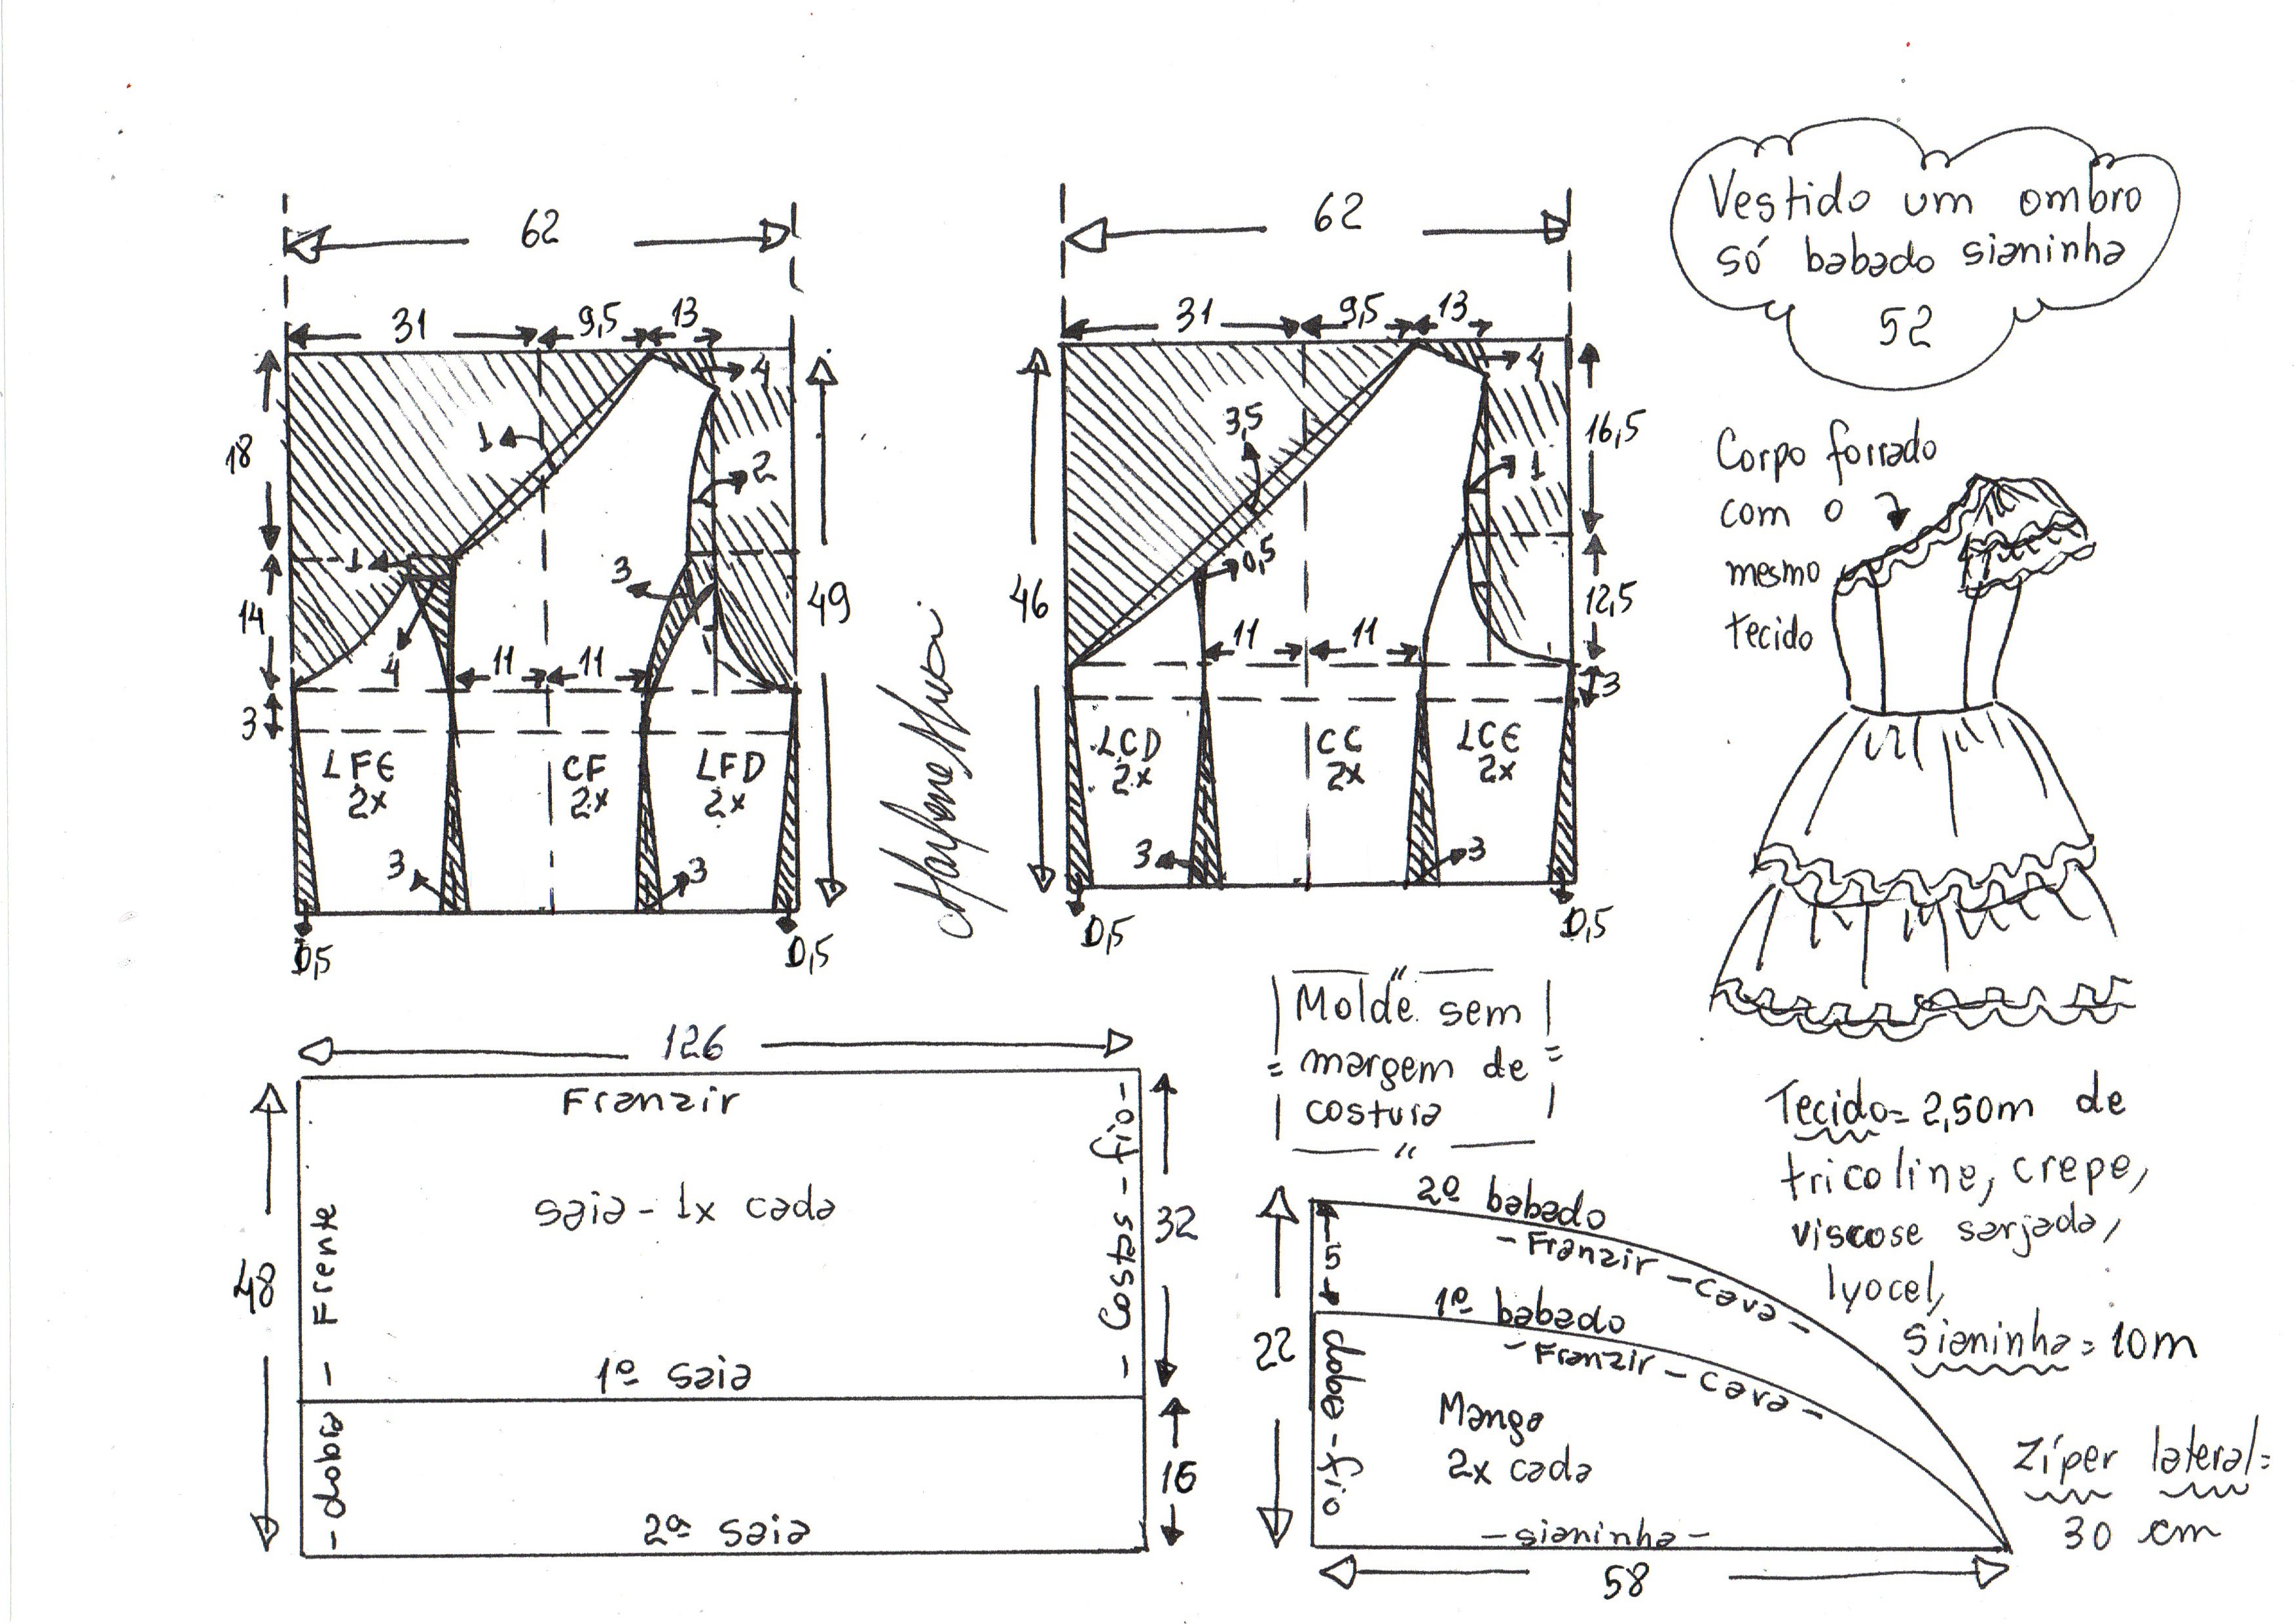 Vestido um ombro
só babado sianinha
52
62
31
9,5
13
4
1
18
2
1
3
14
49
4
11
11
3
LFE
2x
CF
2x
LFD
2x
3
3
0,5
0,5
62
31
9,5
13
4
3,5
16,5
1
0,5
46
12,5
11
11
3
LCD
2x
CC
2x
LCE
2x
3
3
0,5
0,5
Corpo forrado
com o
mesmo
tecido
Molde sem
margem de
costura
126
Franzir
saia - 1x cada
48
- dobra - Frente
- Costas - fio -
32
1ª saia
16
2ª saia
2º babado
- Franzir - cava -
5
1º babado
- Franzir - cava -
22
dobra - fio
Manga
2x cada
- sianinha -
58
Tecido = 2,50m de
tricoline, crepe,
viscose sarjada,
lyocel,
sianinha = 10m
Zíper lateral =
30 cm